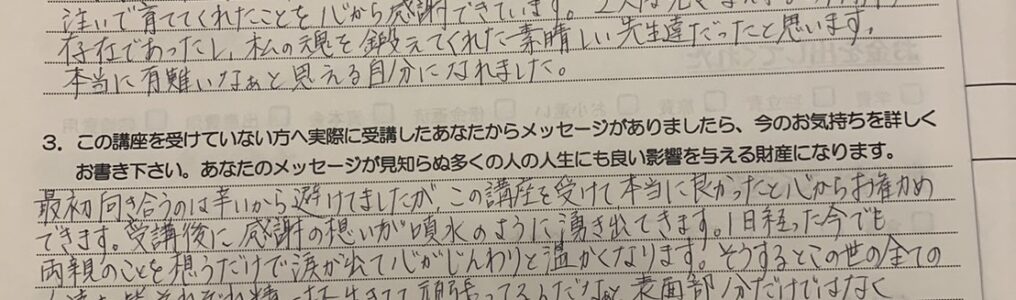 注いで育ててくれたことを心から感謝できています。
存在であったし、私の魂を鍛えてくれた素晴しい先生達だったと思います。
本当に有難いなぁと思える自分になれました。
3. この講座を受けていない方へ実際に受講したあなたからメッセージがありましたら、今のお気持ちを詳しく
お書き下さい。あなたのメッセージが見知らぬ多くの人の人生にも良い影響を与える財産になります。
最初向き合うのは辛いから避けてましたが、この講座を受けて本当に良かったと心からお薦め
できます。受講後に感謝の想いが噴水のように湧き出てきます。1日経った今でも
両親のことを想うだけで涙が出て心がじんわりと温かくなります。そうするとこの世の全ての
頑張ってるんだなぁ 表面部分だけではなく